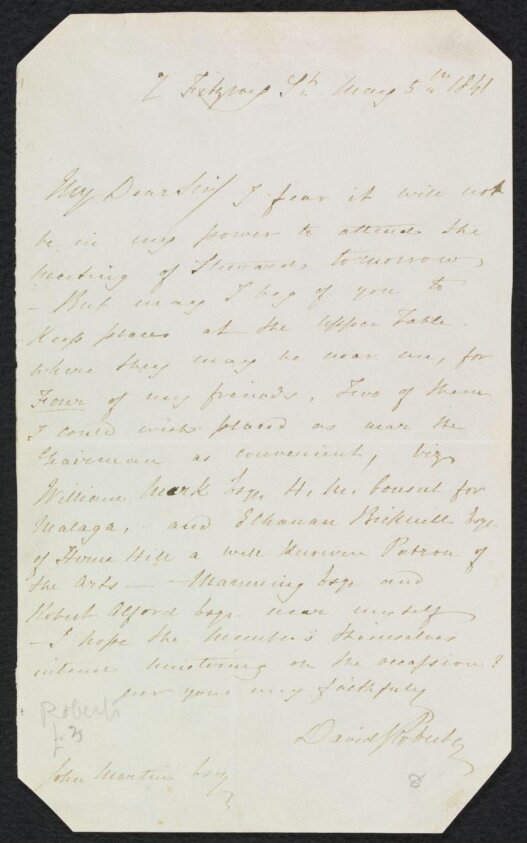 7 Fitzroy St. May 5th 1841
My Dear Sir / I fear it will not
be in my power to attend the
meeting of Stewards tomorrow
- But may I beg of you to
Keep places at the upper Table
where they may be near me, for
Four of my friends, Two of them
I could wish placed as near the
Chairman as convenient, viz
William Mark Esqr. H. M. Consul for
Malaga, - and Elhanan Bicknell Esqr
of Herne Hill a well Known Patron of
the Arts — Manning Esqr and
Robert Alford Esqr near myself
- I hope the members themselves
intend mustering on the occassion?
ever yours very faithfully
David Roberts
John Martin Esq
Roberts
8